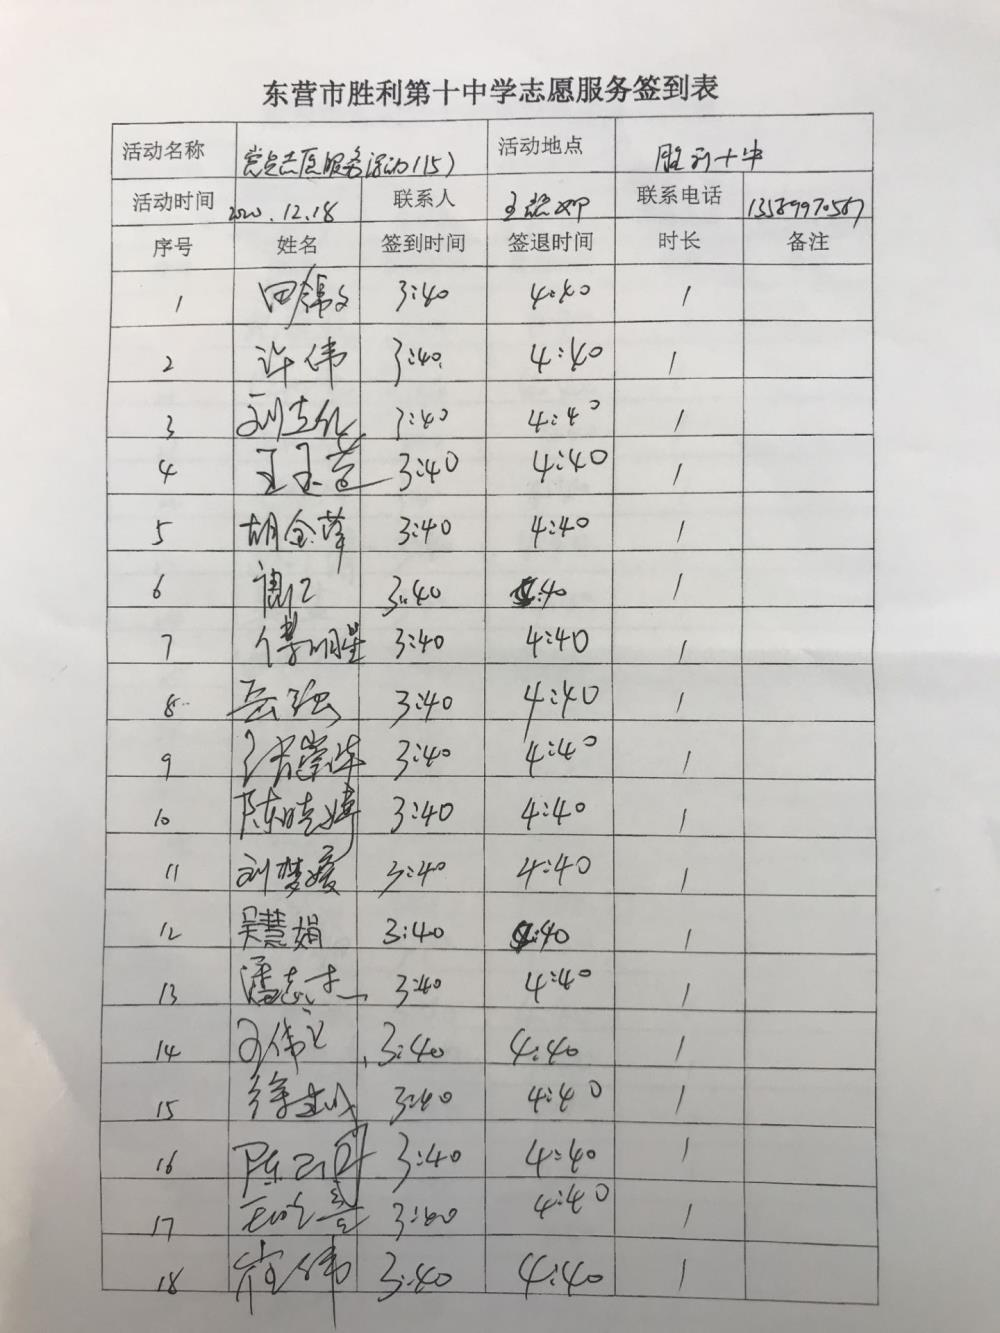 东营市胜利第十中学志愿服务签到表
活动名称 党员志愿服务活动(15) 活动地点 胜利十中
活动时间 2020.12.18 联系人 联系电话 13589970587
序号 姓名 签到时间 签退时间 时长 备注
1 3:40 4:40 1
2 许伟 3:40 4:40 1
3 3:40 4:40 1
4 王玉莲 3:40 4:40 1
5 胡金萍 3:40 4:40 1
6 3:40 4:40 1
7 傅明星 3:40 4:40 1
8 岳强 3:40 4:40 1
9 3:40 4:40 1
10 陈晓婷 3:40 4:40 1
11 刘梦媛 3:40 4:40 1
12 吴慧娟 3:40 4:40 1
13 潘志杰 3:40 4:40 1
14 3:40 4:40 1
15 3:40 4:40 1
16 3:40 4:40 1
17 3:40 4:40 1
18 崔伟 3:40 4:40 1